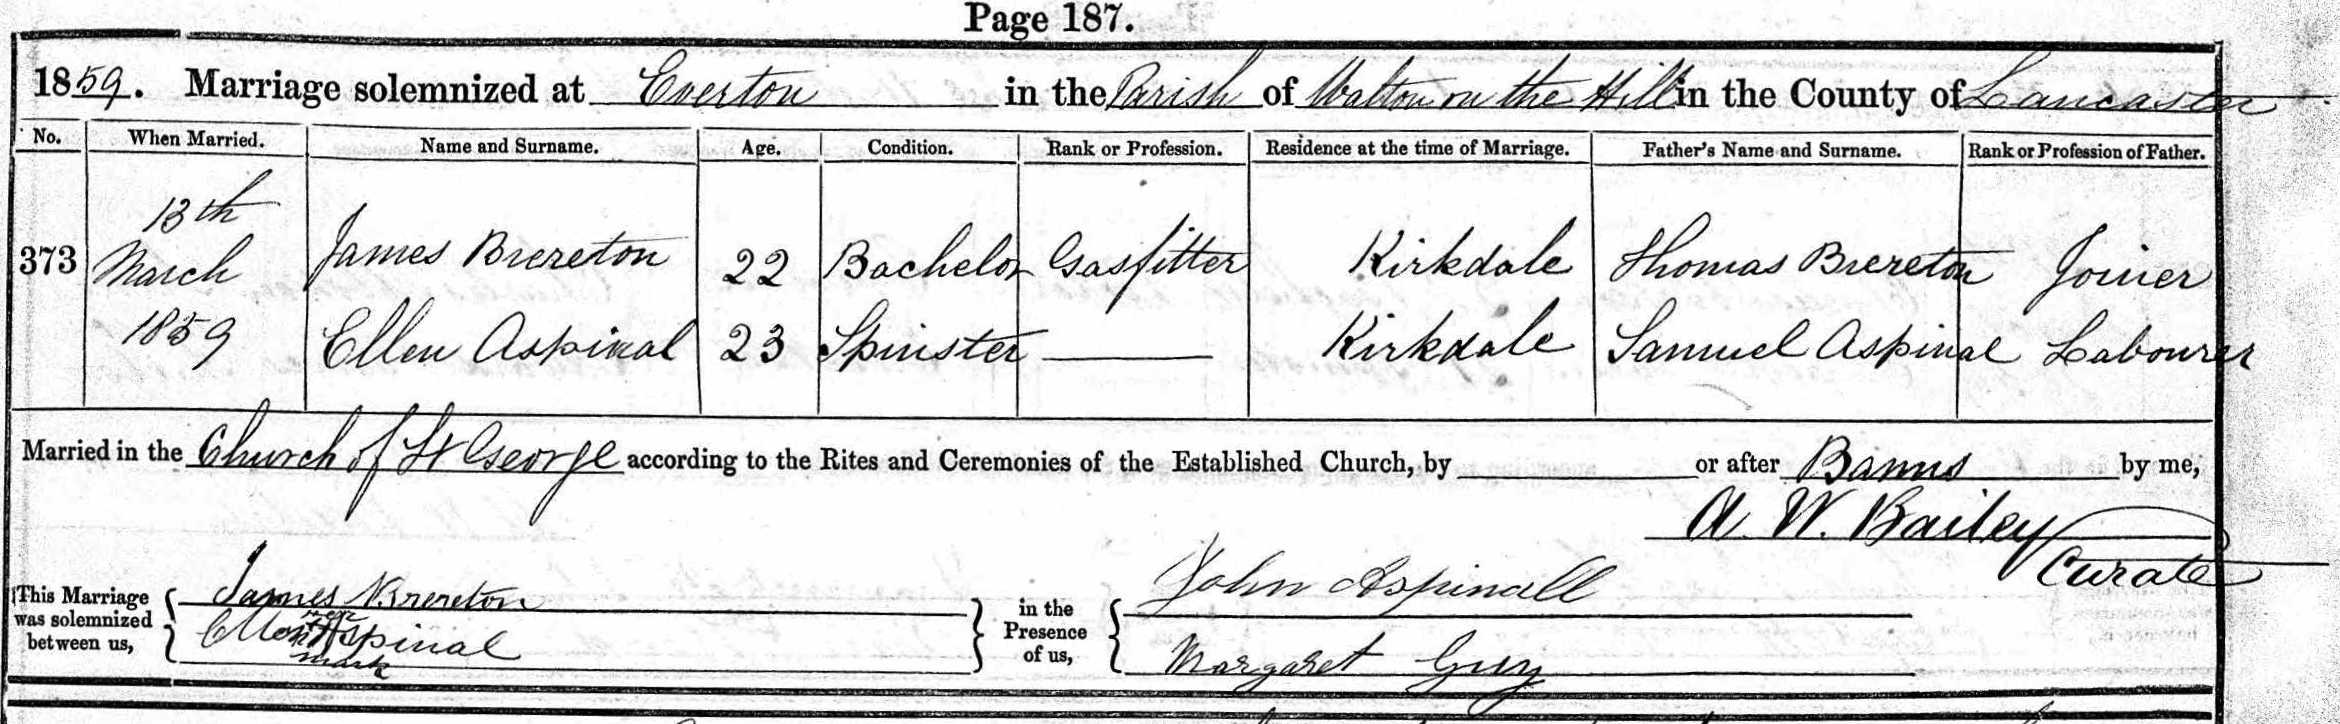 Page 187.
1859. Marriage solemnized at Everton in the Parish of Walton on the Hill in the County of Lancaster
No. When Married. Name and Surname. Age. Condition. Rank or Profession. Residence at the time of Marriage. Father's Name and Surname. Rank or Profession of Father.
373 13th March 1859 James Brereton 22 Bachelor Gasfitter Kirkdale Thomas Brereton Joiner
Ellen Aspinal 23 Spinster Kirkdale Samuel Aspinal Labourer
Married in the Church of St George according to the Rites and Ceremonies of the Established Church, by or after Banns by me,
A. W. Bailey
Curate
This Marriage was solemnized between us,
James Brereton
Ellen Aspinal her X mark
in the Presence of us,
John Aspinall
Margaret Guy